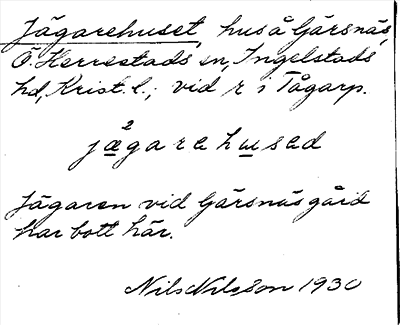 Jägarehuset, hus å Gärsnäs,
Ö. Herrestads sn, Ingelstads
hd, Krist. l.; vid r i Tågarp.
2
jägarehusad
Jägaren vid Gärsnäs gård
har bott här.
Nils Nilsson 1930